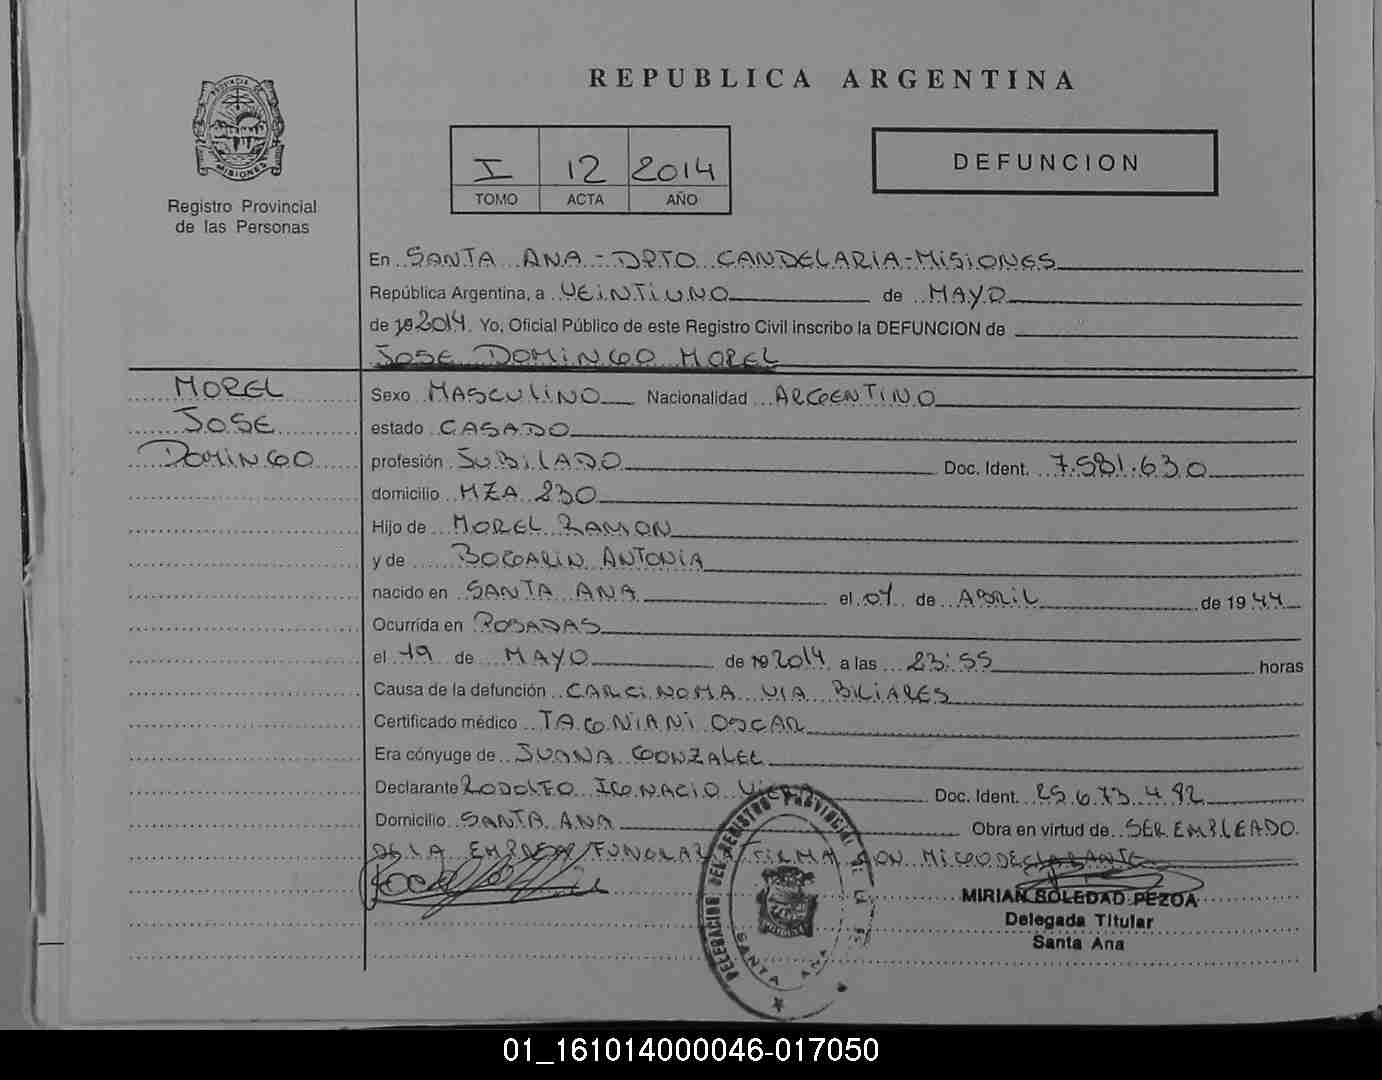 REPUBLICA ARGENTINA
PROVINCIA DE MISIONES
Registro Provincial
de las Personas
I 12 2014
TOMO ACTA AÑO
DEFUNCION
En SANTA ANA - DPTO CANDELARIA - MISIONES
República Argentina, a VEINTIUNO de MAYO
de 19 2014. Yo, Oficial Público de este Registro Civil inscribo la DEFUNCION de
JOSE DOMINGO MOREL
MOREL
JOSE
DOMINGO
Sexo MASCULINO Nacionalidad ARGENTINO
estado CASADO
profesión JUBILADO Doc. Ident. 7.581.630
domicilio MZA 230
Hijo de MOREL RAMON
y de BOGARIN ANTONIA
nacido en SANTA ANA el 07 de ABRIL de 1944
Ocurrida en POSADAS
el 19 de MAYO de 19 2014 a las 23:55 horas
Causa de la defunción CARCINOMA VIA BILIARES
Certificado médico TAGNIANI OSCAR
Era cónyuge de JUANA GONZALEZ
Declarante RODOLFO IGNACIO VIERA Doc. Ident. 25.673.492
Domicilio SANTA ANA Obra en virtud de SER EMPLEADO
DE LA EMPRESA FUNERARIA FIRMA CON MIGO DECLARANTE
MIRIAN SOLEDAD PEZOA
Delegada Titular
Santa Ana
DELEGACION DEL REGISTRO PROVINCIAL DE LAS
SANTA ANA
01_161014000046-017050